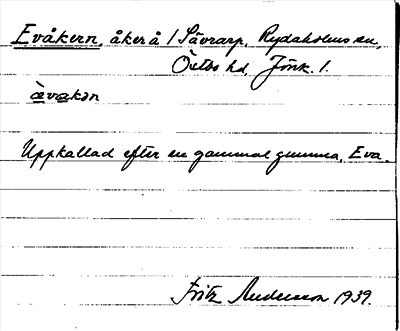 Evåkern, åker å 1 Sävrarp, Rydaholms sn,
Östbo hd, Jönk. l.
ævakən
Uppkallad efter en gammal gumma, Eva.
Fritz Andersson 1939.